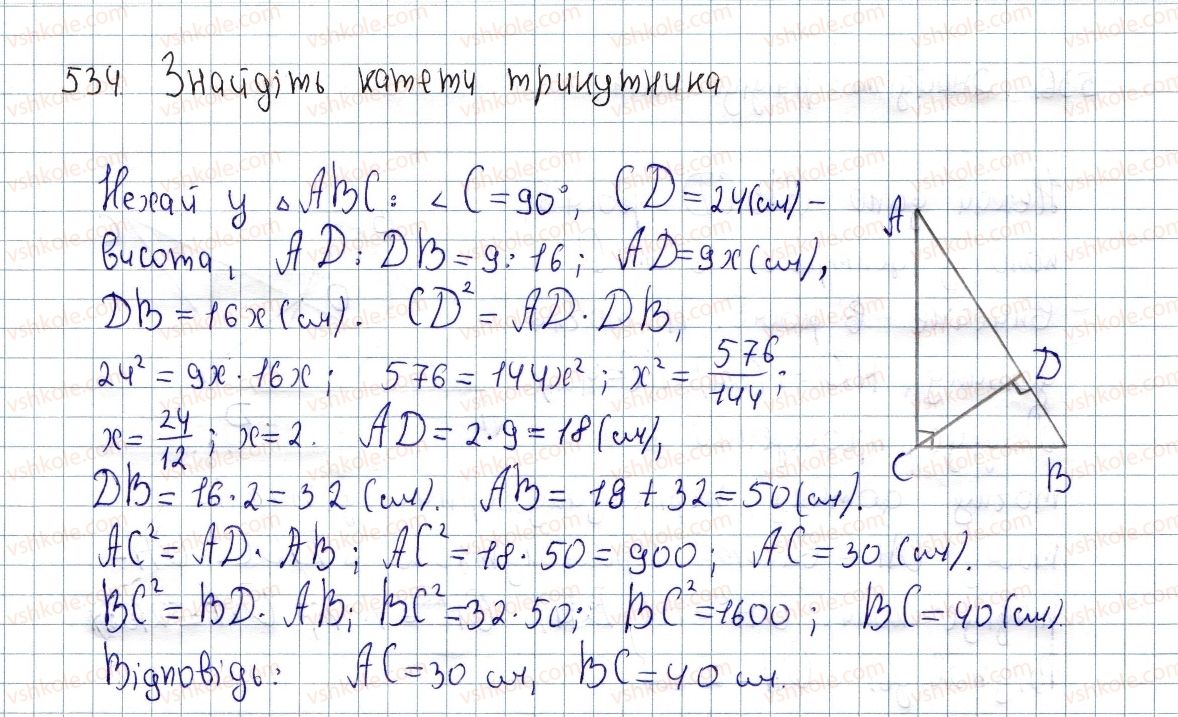 534 Знайдіть катети трикутника
Нехай у △ABC: ∠C=90°, CD=24(см) –
висота, AD:DB=9:16; AD=9x(см),
DB=16x(см). CD²=AD·DB,
24²=9x·16x; 576=144x²; x²=576/144;
x=24/12; x=2. AD=2·9=18(см),
DB=16·2=32(см). AB=18+32=50(см).
AC²=AD·AB; AC²=18·50=900; AC=30(см).
BC²=BD·AB; BC²=32·50; BC²=1600; BC=40(см).
Відповідь: AC=30 см, BC=40 см.
A
D
C
B
vshkole.com